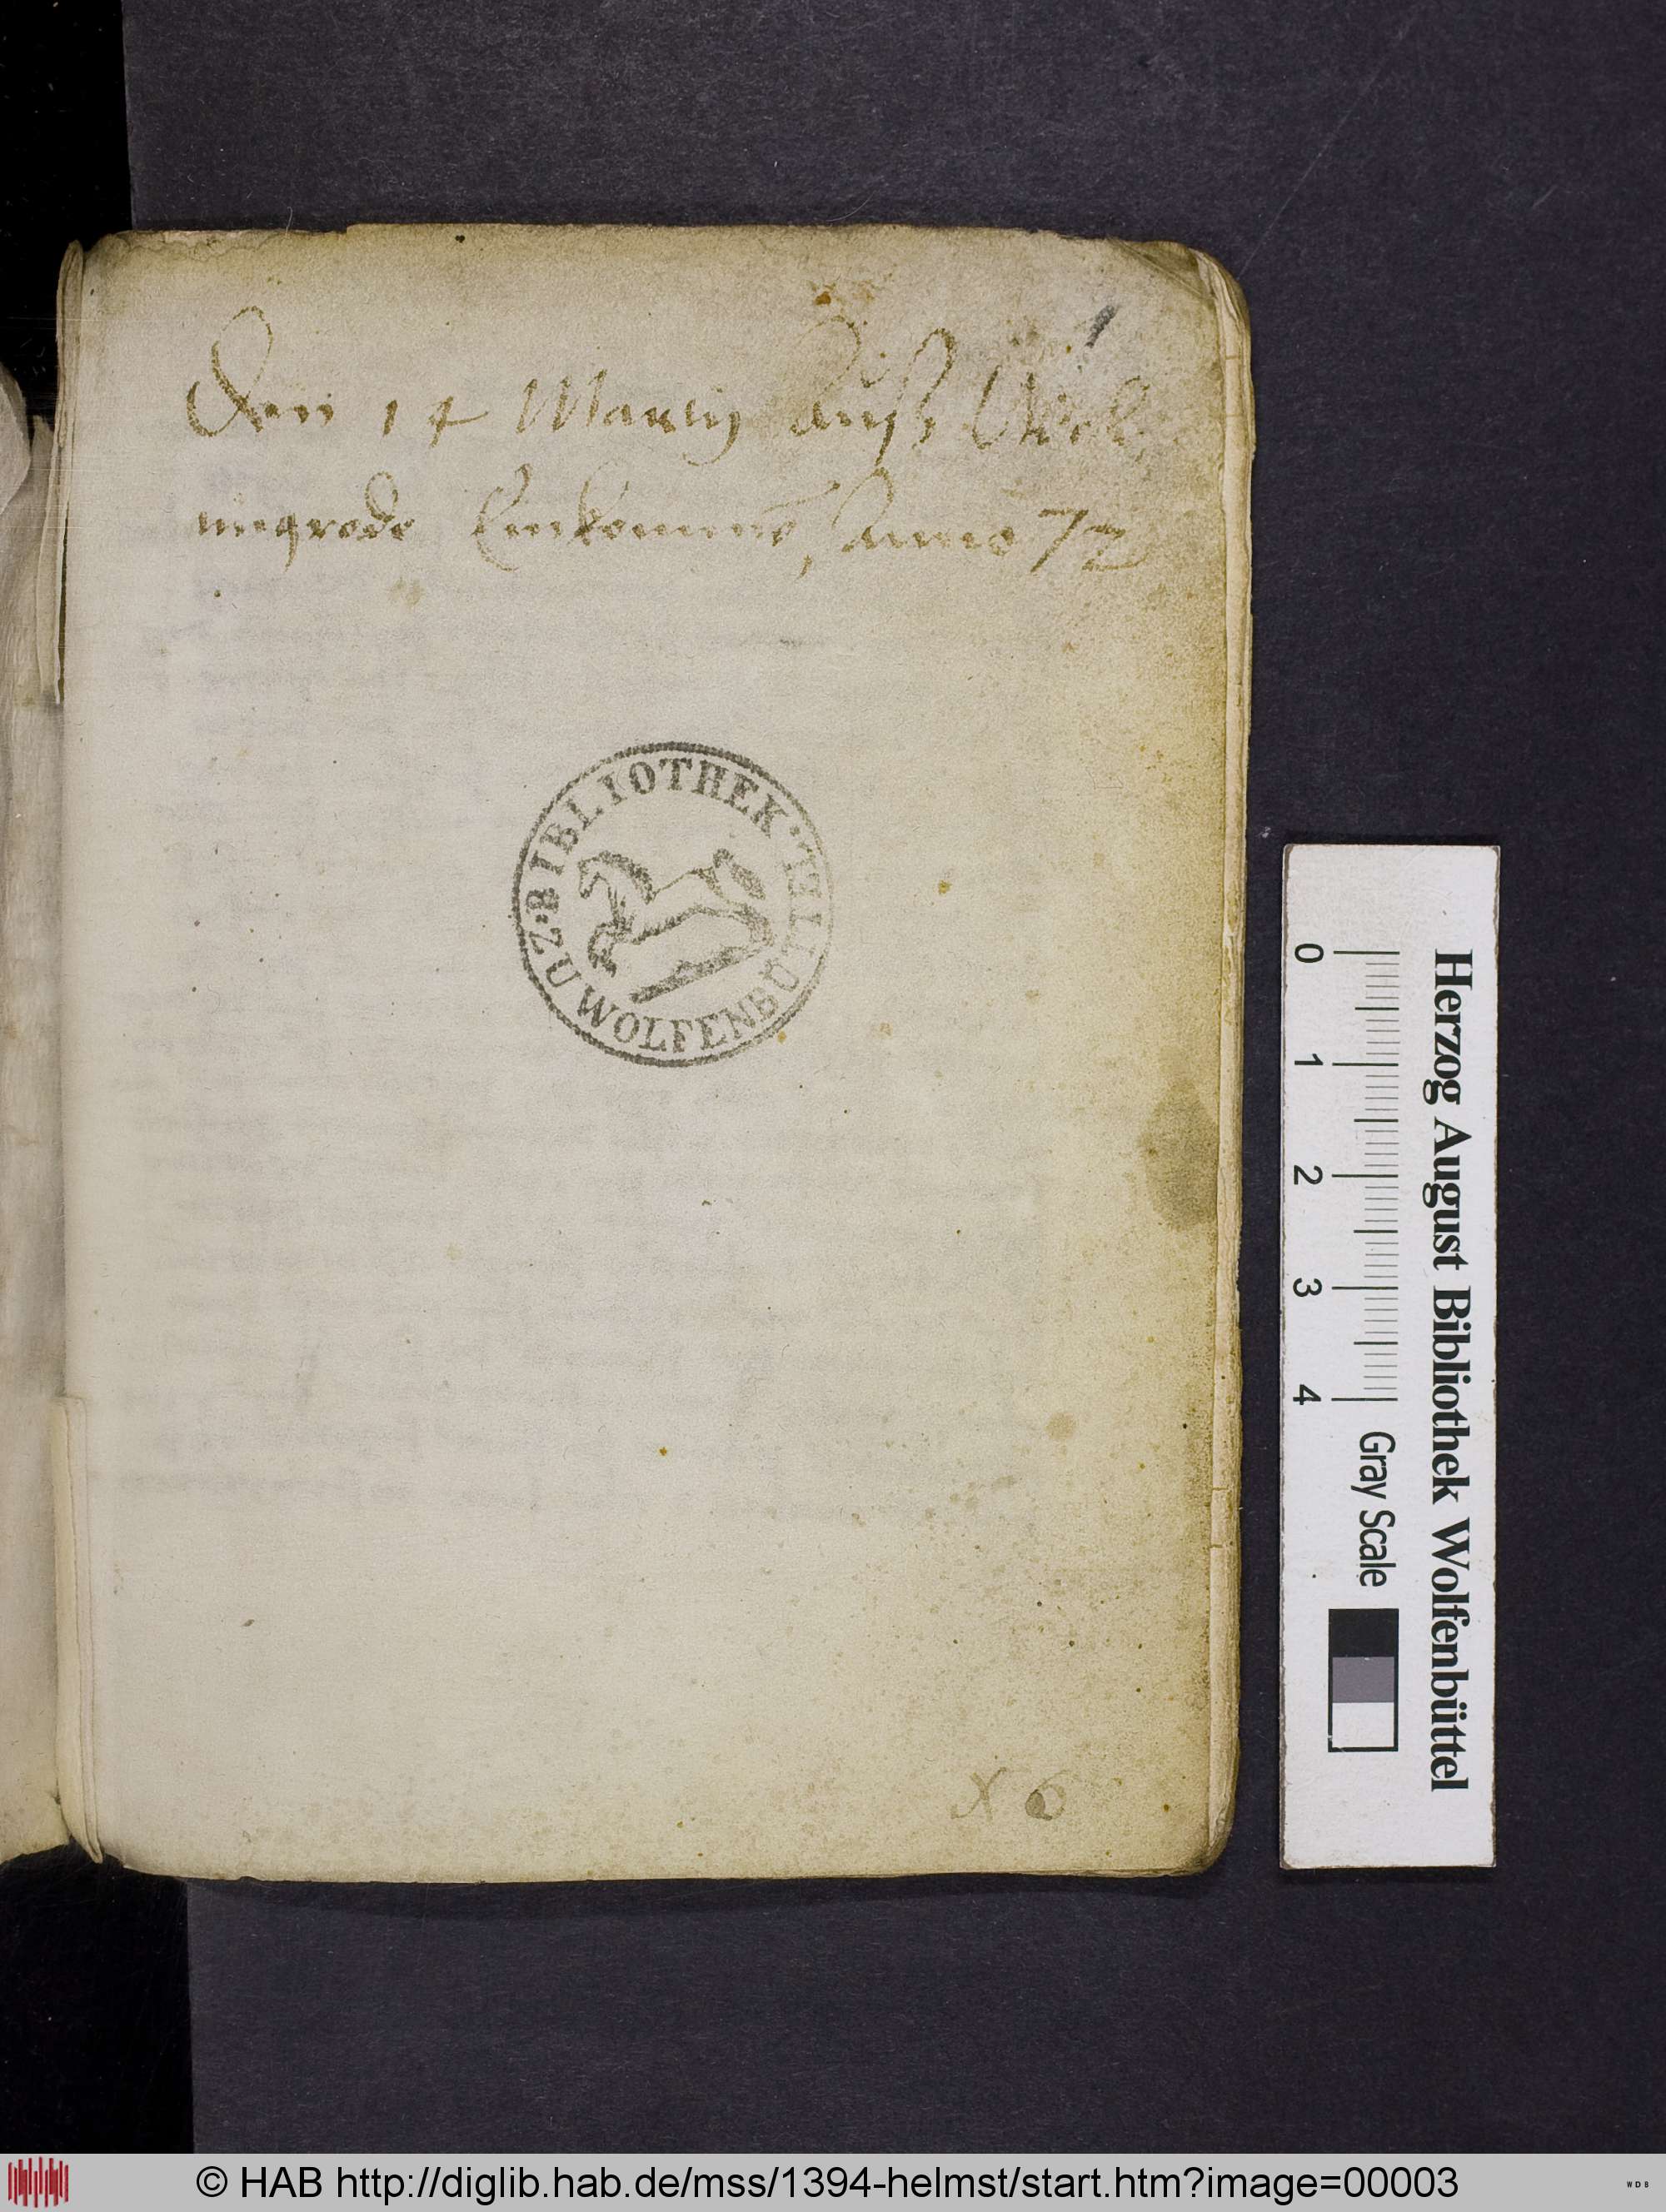 1
Den 14 Martij Auß Wol
mingrode Einkommē, Anno 72
BIBLIOTHEK
ZU WOLFENBÜTTEL.
X 6
Herzog August Bibliothek Wolfenbüttel
0 1 2 3 4 Gray Scale
© HAB http://diglib.hab.de/mss/1394-helmst/start.htm?image=00003
WDB